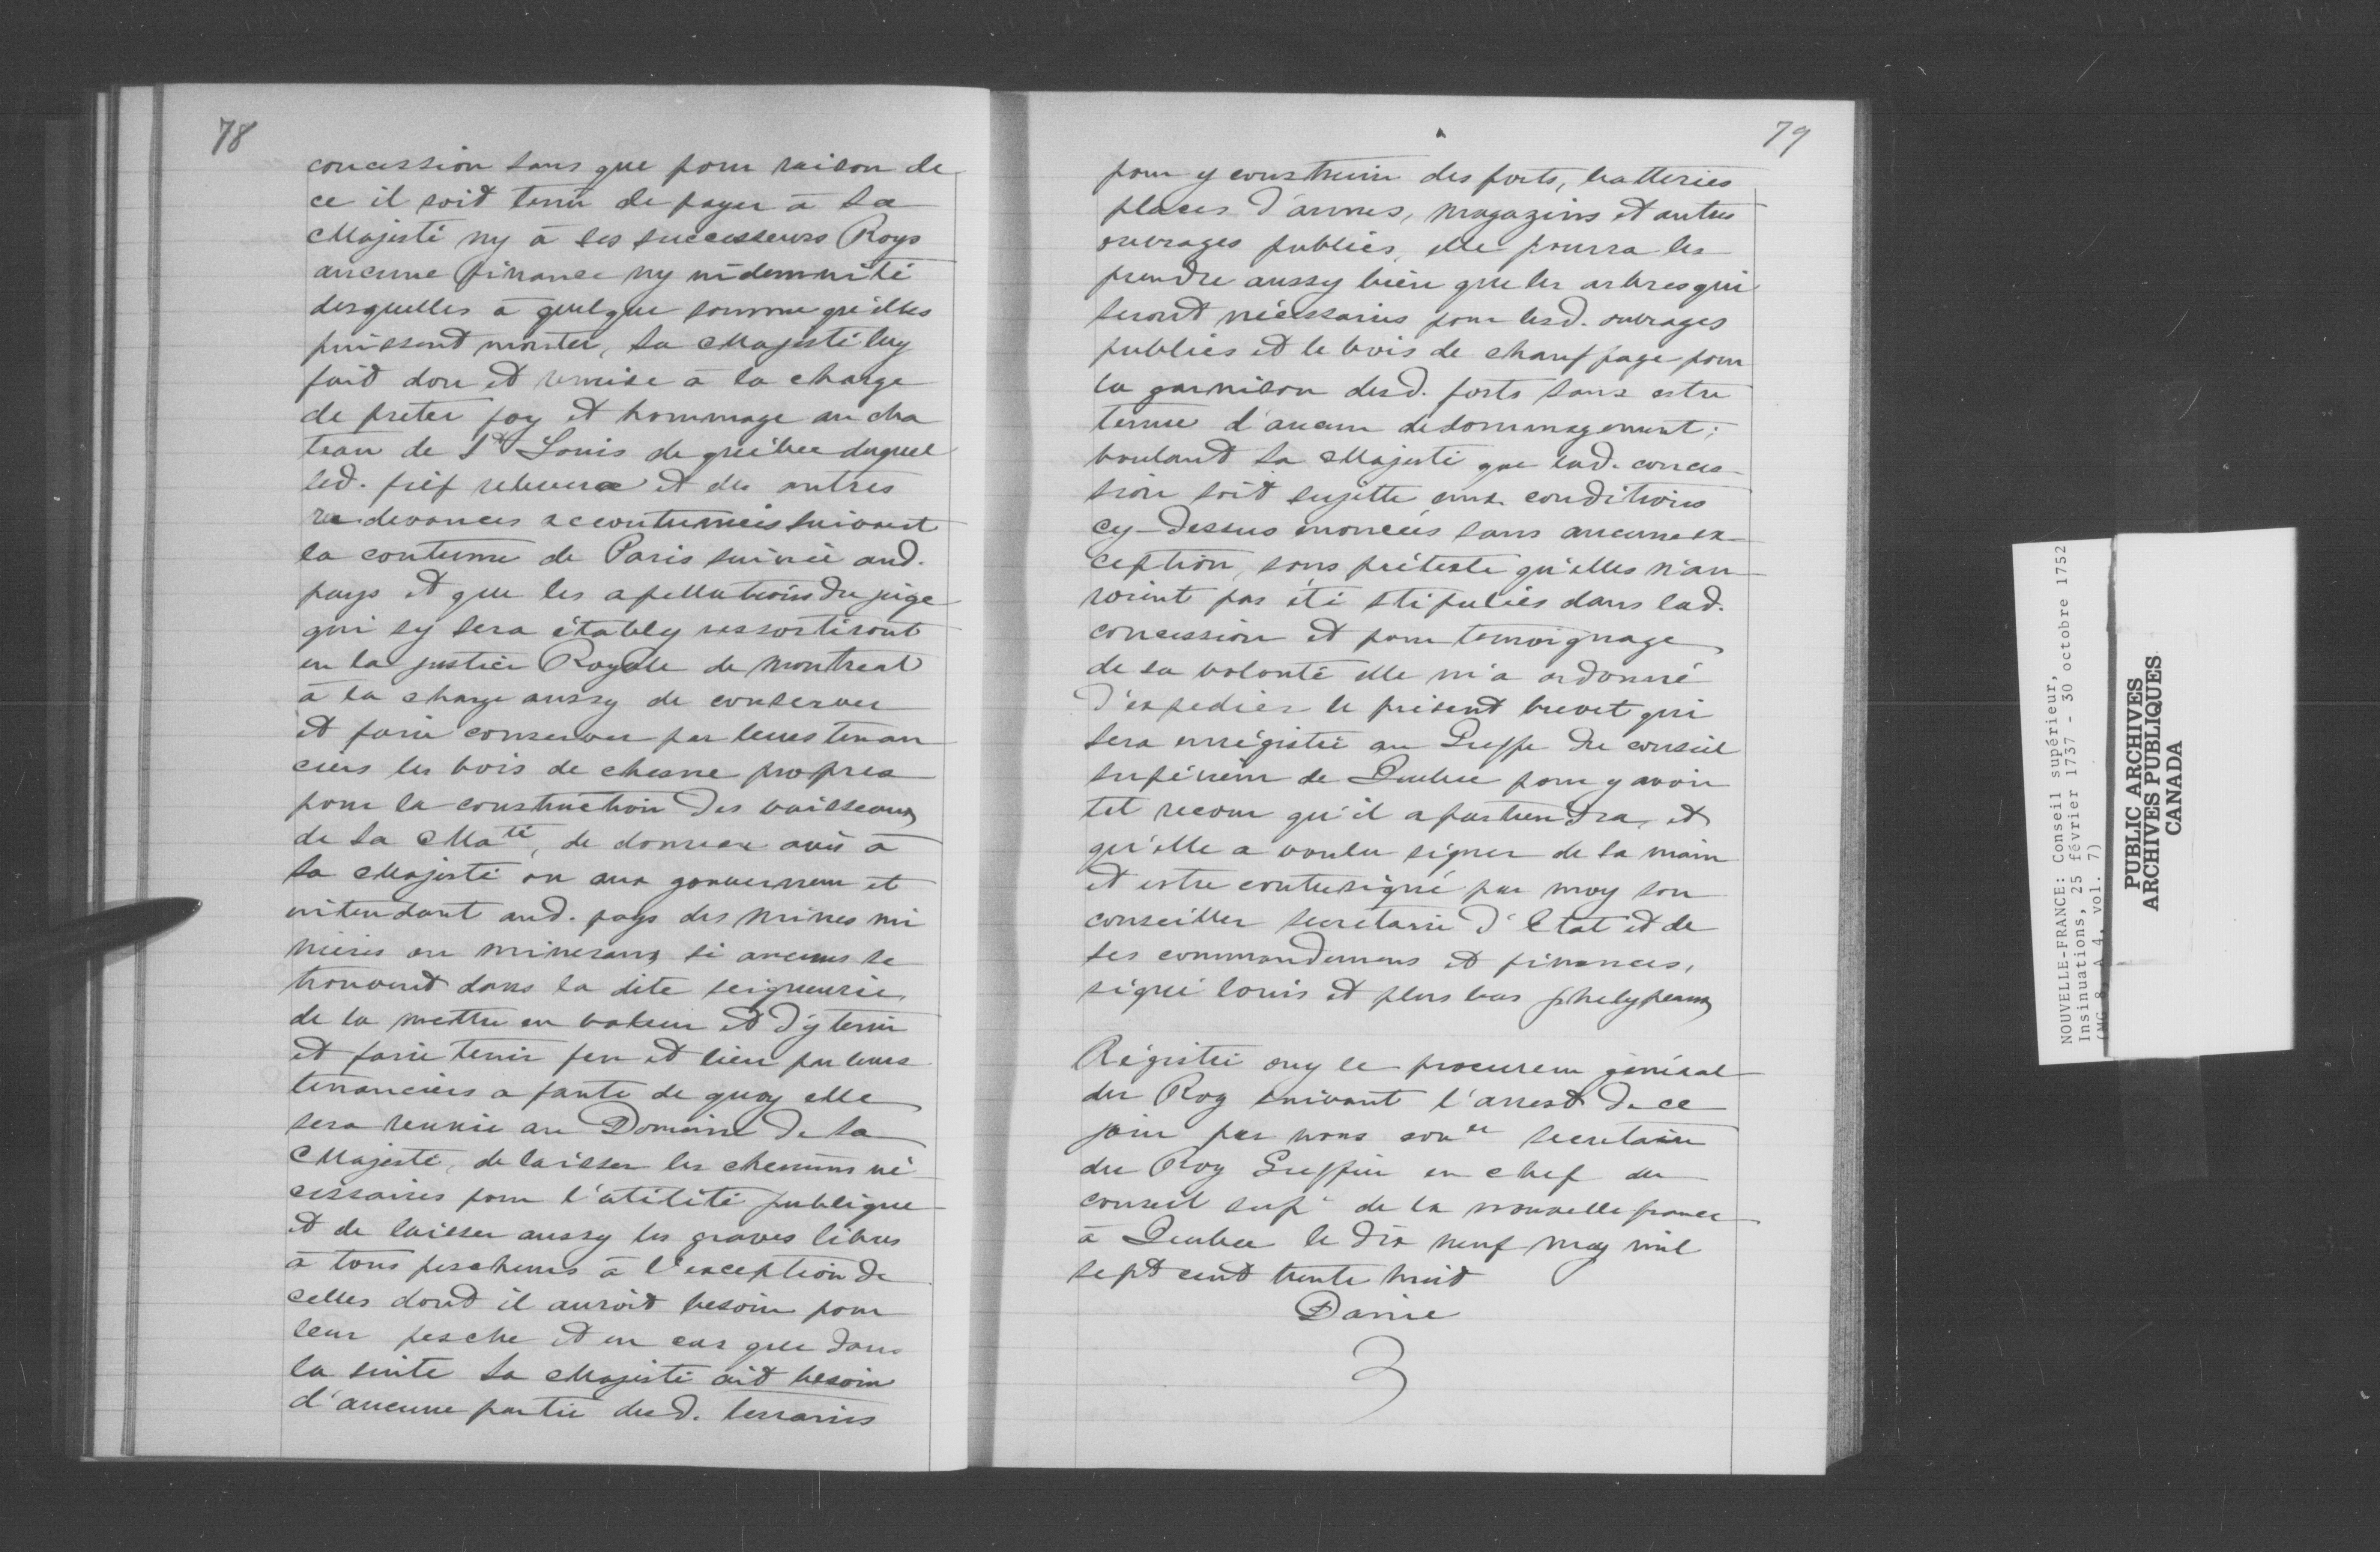 78
concession sans que pour raison de
ce il soit tenu de payer à sa
Majesté ny à ses successeurs Roys
aucune finance ny indemnité
desquelles à quelque somme qu'elles
puissent monter, sa Majesté luy
fait don et remise à la charge
de preter foy et hommage au cha
teau de St Louis de quebec duquel
led. fief relevera et des autres
redevances accoutumées suivant
la coutume de Paris suivie aud.
pays et que les apellations du juge
qui sy sera étably ressortiront
en la justice Royale de Montreal
à la charge aussy de conserver
et faire conserver par leurs tenan
ciers les bois de chesne propres
pour la construction des vaisseaux
de sa Maté, de donner avis à
sa Majesté ou aux gouverneur et
intendant aud. pays des mines mi
nieres ou mineraux si aucuns se
trouvent dans la dite seigneurie,
de la mettre en valeur et d'y tenir
et faire tenir feu et lieu par leurs
tenanciers a faute de quoy elle
sera reunie au Domaine de Sa
Majesté, de laisser les chemins né
cessaires pour l'utilité publique
et de laisser aussy les graves libres
à tous pescheurs à l'exception de
celles dont il auroit besoin pour
leur pesche et en cas que dans
la suite sa Majesté ait besoin
d'aucune partie dud. terrains
79
pour y construire des forts, batteries
places d'armes, magazins et autres
ouvrages publics, elle pourra les
prendre aussy bien que les arbres qui
seront nécessaires pour lesd. ouvrages
publics et le bois de chauffage pour
la garnison desd. forts sans estre
tenue d'aucun dedommagement;
voulant sa Majesté que lad. conces-
sion soit sujette aux conditions
cy-dessus énoncées sans aucune ex-
ception, sous prétexte qu'elles n'au-
roient pas été stipulées dans lad.
concession et pour temoignage
de sa volonté elle m'a ordonné
d'expedier le présent brevet qui
sera enrégistré au Greffe du conseil
supérieur de Quebec pour y avoir
tel recour qu'il apartiendra, et
qu'elle a voulu signer de sa main
et estre contresigné par moy son
conseiller secretaire d'Etat et de
ses commandemens et finances,
signé louis et plus bas phelypeaux
Régistré ouy le procureur général
du Roy suivant l'arrest de ce
jour par nous coner secretaire
du Roy Greffier en chef du
conseil supr de la nouvelle france
à Quebec le dix neuf may mil
sept cent trente huit
Daine
NOUVELLE-FRANCE: Conseil supérieur,
Insinuations, 25 février 1737 - 30 octobre 1752
(MG 8, A 4, vol. 7)
PUBLIC ARCHIVES
ARCHIVES PUBLIQUES
CANADA